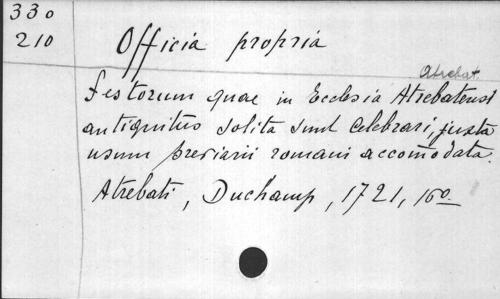 330
210
Officia propria
Atrebat.
Festorum quae in Ecclesia Atrebatensi
antiquitus solita sunt celebrari, juxta
usum breviarii romani accomodata.
Atrebati, Duchamp, 1721, 16o.